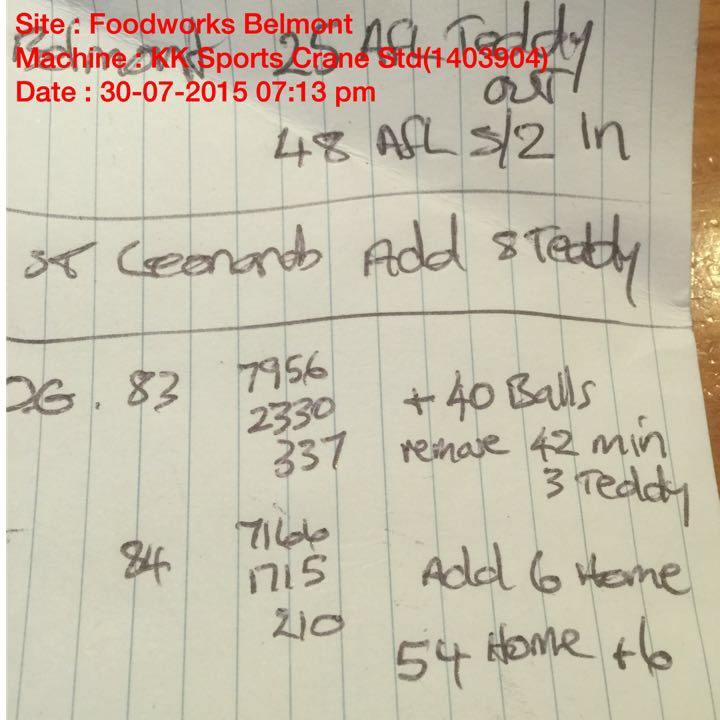 Site : Foodworks Belmont
Machine : KK Sports Crane Std(1403904)
Date : 30-07-2015 07:13 pm
Belmont 25 AFL Teddy
out
48 AFL S/2 In
St Leonards Add 8 Teddy
OG. 83 7956
2330 + 40 Balls
337 remove 42 min
3 Teddy
7166
84 1715 Add 6 Home
210
54 Home +6